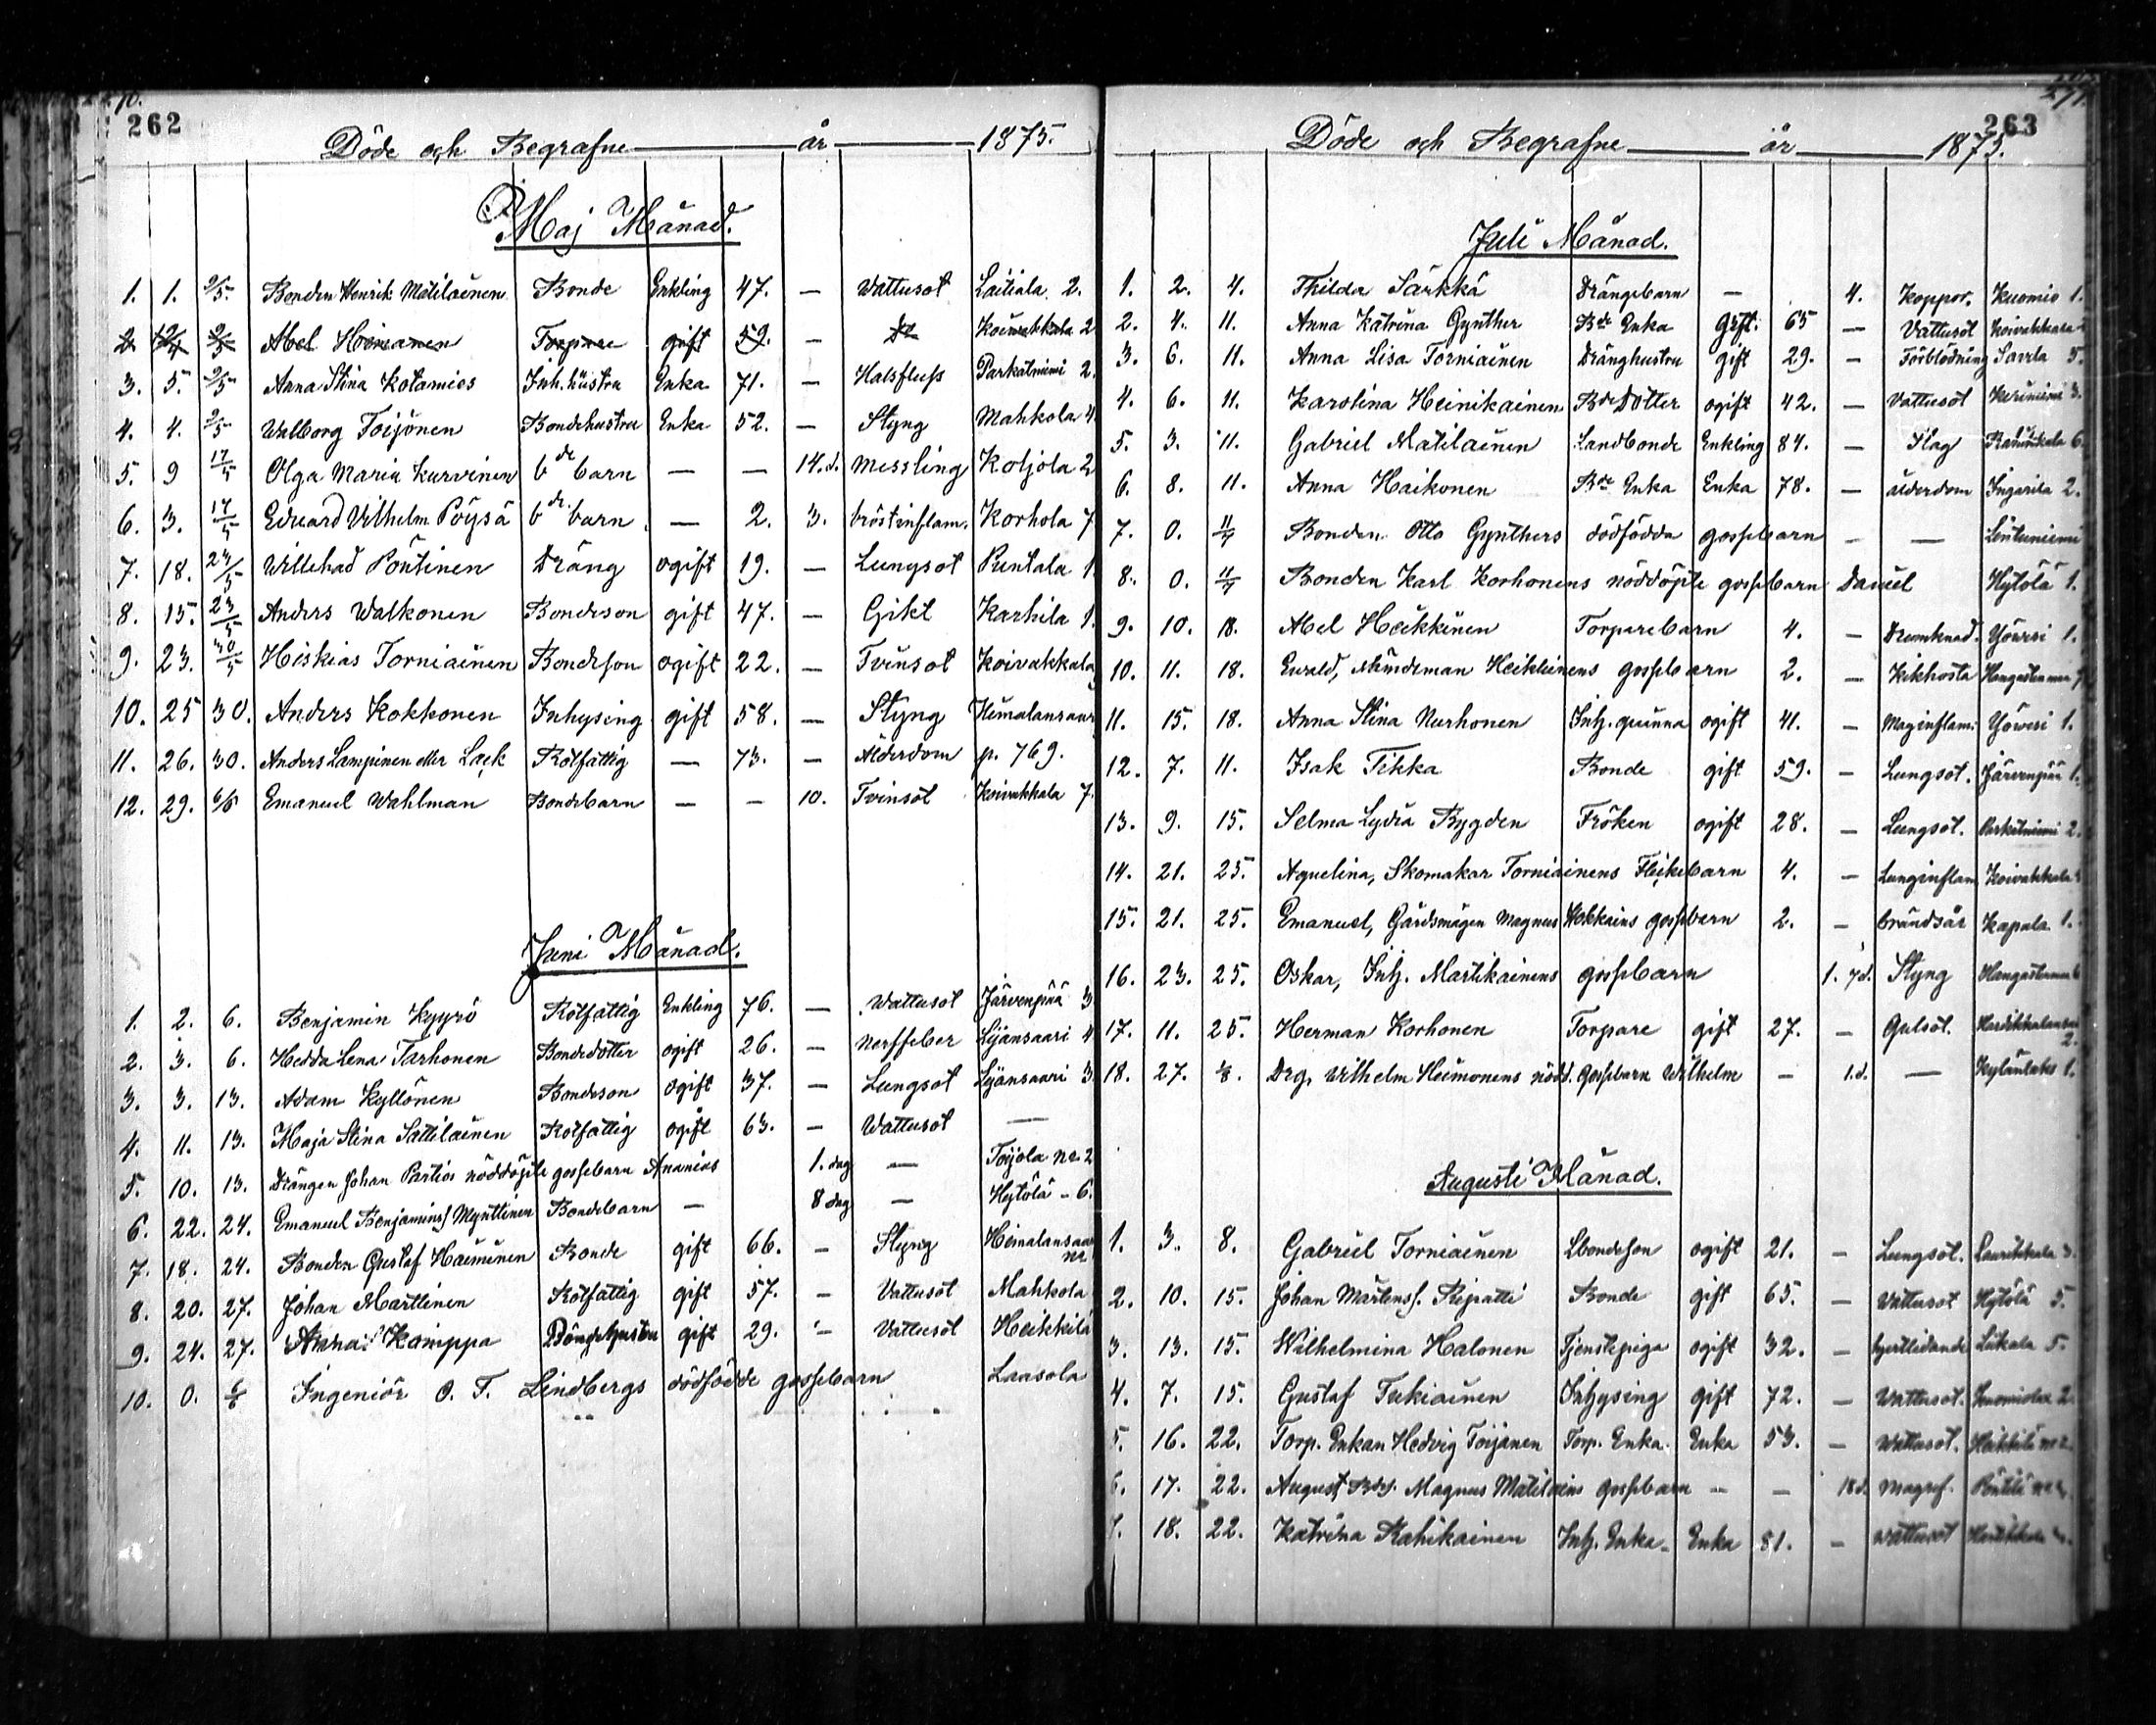 262
Döde och Begrafne år 1875.
Maj Månad.
1. 1. 2/5. Bonden Henrik Matilainen Bonde Enkling 47. — Wattusot Laitiala 2.
2. 12/4 2/5 Abel Heimanen Torpare gift 59. — Do Koiwakkala 2
3. 5. 2/5 Anna Stina Kotamies Inh. hustru Enka 71. — Halsfluss Parkatniemi 2.
4. 4. 2/5 Walborg Toijonen Bondehustru Enka 52. — Styng Mahkola 4.
5. 9 17/5 Olga Maria Kurvinen bde barn — — 14. d. messling Kotjola 2
6. 3. 17/5 Edvard Vilhelm Pöysä bde barn — 2. 3. bröstinflam. Korhola 7
7. 18. 23/5 Willehad Pöntinen Dräng ogift 19. — Lungsot Puntala 1.
8. 15. 23/5 Anders Walkonen Bondeson gift 47. — Gikt Karhila 1.
9. 23. 30/5 Hiskias Torniainen Bondeson ogift 22. — Tvinsot Koivakkala
10. 25 30. Anders Kokkonen Inhysing gift 58. — Styng Himalansaari
11. 26. 30. Anders Lampinen eller Lack Rotfattig — 73. — Ålderdom p. 769.
12. 29. 6/6 Emanuel Wahlman Bondebarn — — 10. Tvinsot Koivakkala 7.
Juni Månad.
1. 2. 6. Benjamin Kyyrö Rotfattig Enkling 76. — Wattusot Järvenpää 3
2. 3. 6. Hedda Lena Tarhonen Bondedotter ogift 26. — Nerffeber Lijansaari 4
3. 3. 13. Adam Kyllönen Bondeson ogift 37. — Lungsot Lijansaari 3.
4. 11. 13. Maja Stina Sattilainen Rotfattig ogift 63. — Wattusot —
5. 10. 13. Drängen Johan Partios nöddöpte gossebarn Ananias 1. dag — Toijola No. 2
6. 22. 24. Emanuel Benjamins. Mynttinen Bondebarn — 8 dag — Hytölä - 6.
7. 18. 24. Bonden Gustaf Häiminen Bonde gift 66. — Styng Himalansaari No.
8. 20. 27. Johan Marttinen Rotfattig gift 57. — Vattusot Mahkola
9. 24. 27. Anna Kamppa Bondehustru gift 29. — Vattusot Heikkilä
10. 0. Ingeniör O. T. Lindbergs dödfödde gossebarn Laasola
263
Döde och Begrafne år 1875.
Juli Månad.
1. 2. 4. Thilda Särkkä Drängebarn — 4. Koppor. Kuomio 1.
2. 4. 11. Anna Katrina Gynther Bde Enka gift. 65 — Vattusot Koivakkala
3. 6. 11. Anna Lisa Torniainen Dränghustru gift 29. — Förblödning Savela 5.
4. 6. 11. Karolina Heinikainen Bde Dotter ogift 42. — Vattusot
5. 3. 11. Gabriel Matilainen Landbonde Enkling 84. — Slag
6. 8. 11. Anna Haikonen Bde Enka Enka 78. — ålderdom Ingarila 2.
7. 0. 11/7 Bonden Otto Gynthers dödfödda gossebarn — — Lintuniemi
8. 0. 11/7 Bonden Karl Korhonens nöddöpte gossebarn Daniel Hytölä 1.
9. 10. 18. Abel Heikkinen Torparebarn 4. — Drunknad. Yöwesi 1.
10. 11. 18. Evald, Mündeman Heikkinens gossebarn 2. — Kikhosta
11. 15. 18. Anna Stina Nurhonen Inh. qvinna ogift 41. — Maginflam. Yöwesi 1.
12. 7. 11. Isak Tikka Bonde gift 59. — Lungsot. Järvenpää 1.
13. 9. 15. Selma Lydia Bygden Fröken ogift 28. — Lungsot. Parkatniemi 2.
14. 21. 25. Aquelina, Skomakar Torniainens Flickebarn 4. — Lunginflam Koivakkala
15. 21. 25. Emanuel, Gärdsmägen Magnus Kokkains gossebarn 2. — brandsår Kapala 1.
16. 23. 25. Oskar, Inh. Martikainens gossebarn 1. 7d. Styng
17. 11. 25. Herman Korhonen Torpare gift 27. — Gulsot.
18. 27. 1/8. Drg. Wilhelm Heimonens nödd. gossebarn Wilhelm — 1.d. — Kylänlaks 1.
Augusti Månad.
1. 3. 8. Gabriel Torniainen Lbondeson ogift 21. — Lungsot. Laurikkala 3.
2. 10. 15. Johan Mårtenss. Ripatti Bonde gift 65. — Wattusot Hytölä 5.
3. 13. 15. Wilhelmina Halonen Tjenstepiga ogift 32. — hjertlidande Liikala 5.
4. 7. 15. Gustaf Tukiainen Inhysing gift 72. — Wattusot.
5. 16. 22. Torp. Enkan Hedvig Toijanen Torp. Enka. Enka 53. — Wattusot. Heikkilä No 2.
6. 17. 22. August Bds. Magnus Matilains gossebarn — — 18d. Magref. Pöntilä
7. 18. 22. Katrina Rahikainen Inh. Enka Enka 81. — Wattusot